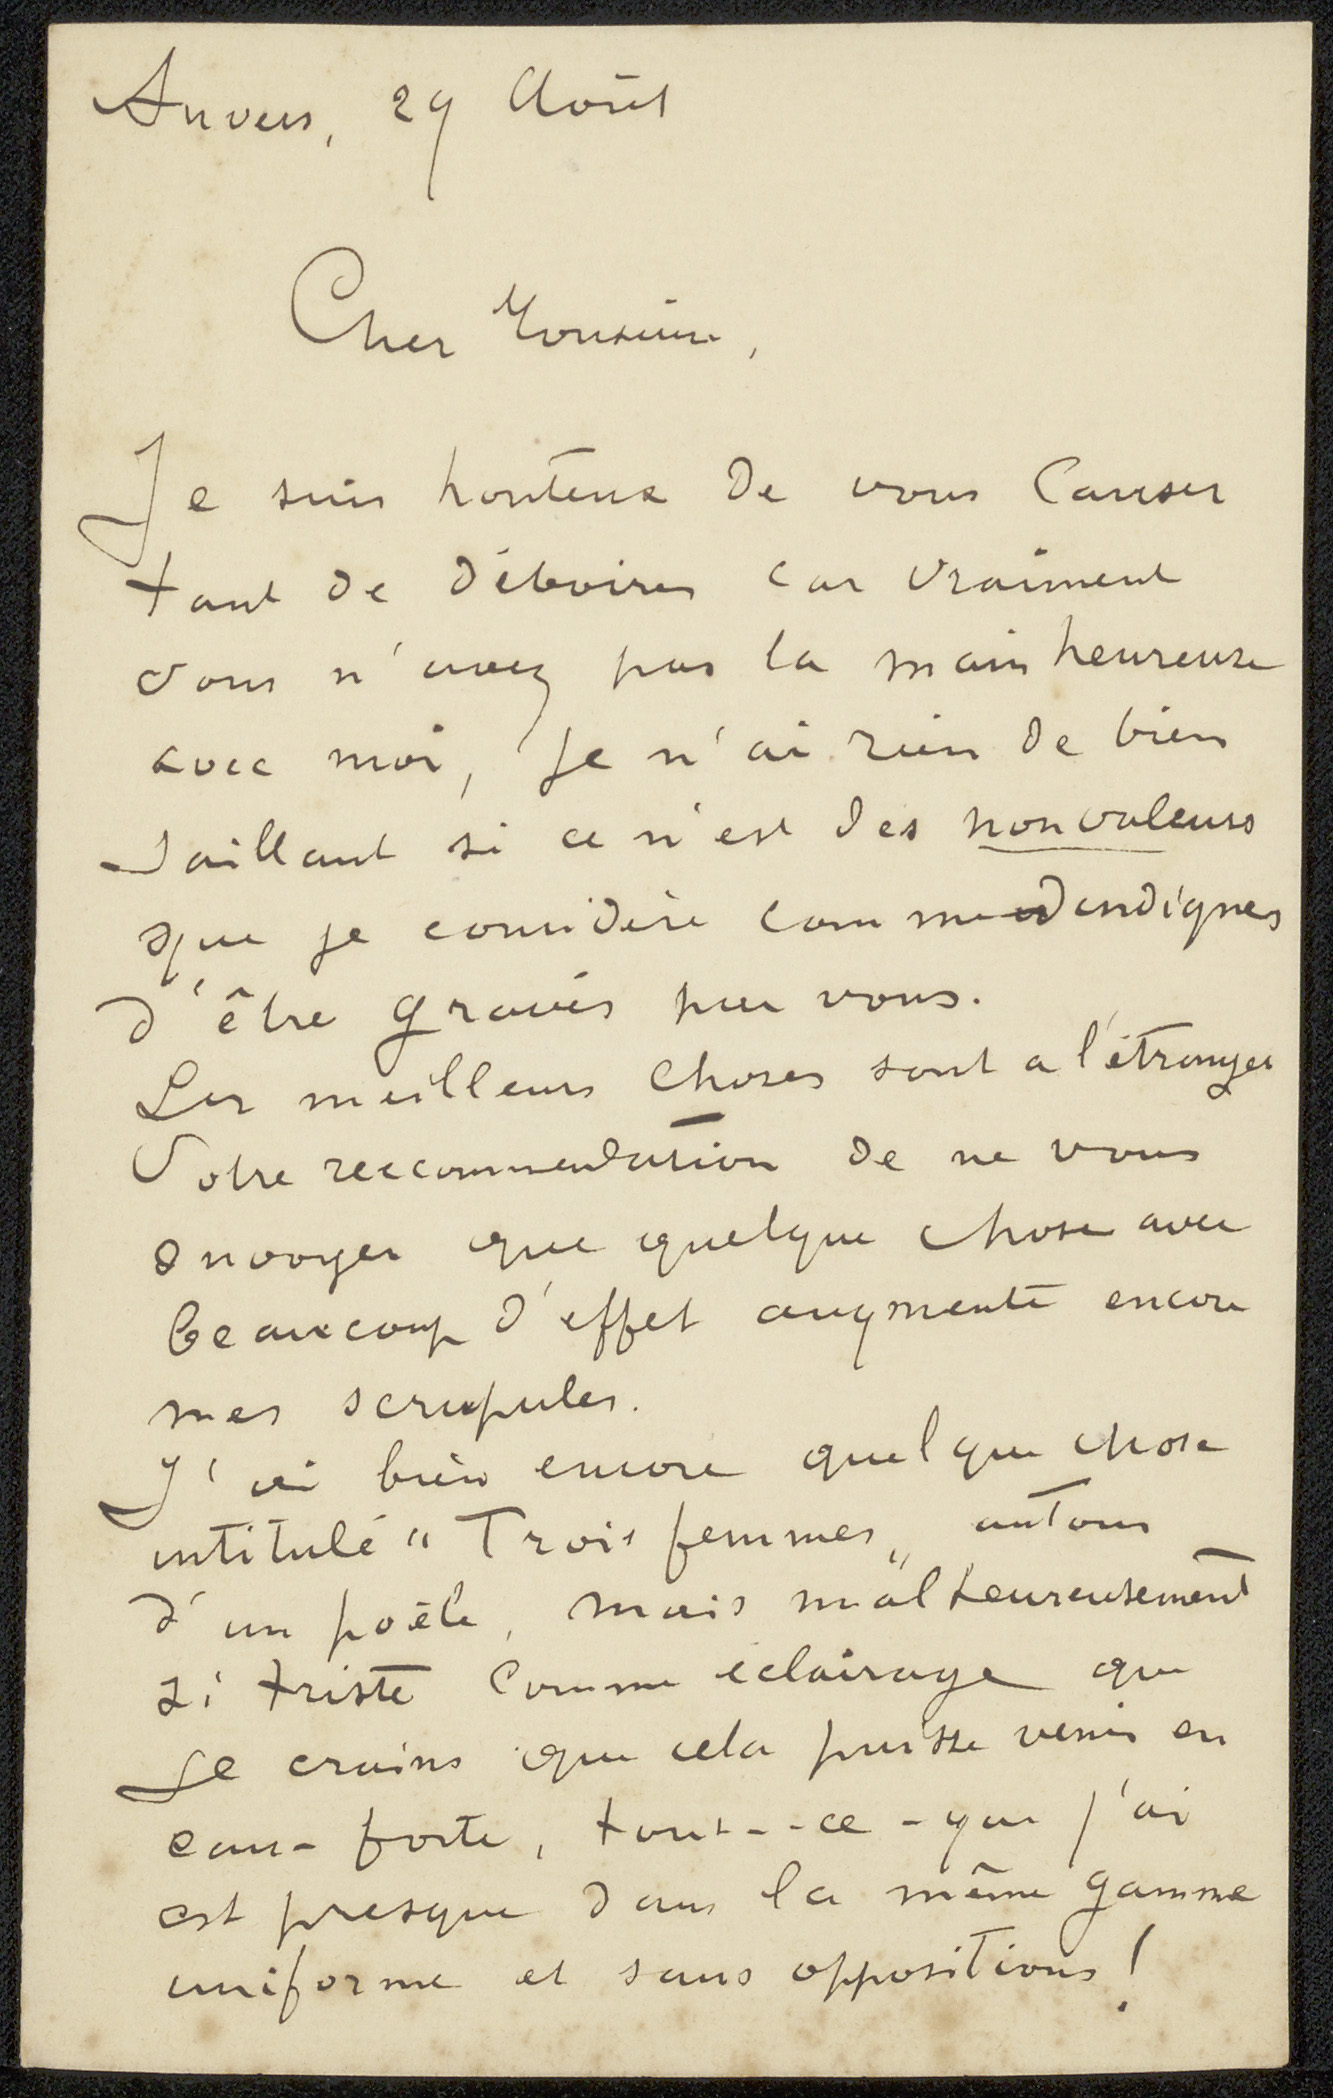 Anvers, 29 Août
Cher Monsieur,
Je suis honteux de vous causer
tant de déboires car vraiment
vous n'avez pas la main heureuse
avec moi, je n'ai rien de bien
vaillant si ce n'est des nonvaleurs
que je considère comme indignes
d'être gravés par vous.
Les meilleurs choses sont a l'étranger
Votre reccommendation de ne vous
envoyer que quelque chose avec
beaucoup d'effet augmente encore
mes scrupules.
J'ai bien encore quelque chose
intitulé "Trois femmes" autour
d'un poêle, mais malheureusement
si triste comme eclairage que
je crains que cela puisse venir en
eau-forte, tout--ce-que j'ai
est presque dans la même gamme
uniforme et sans oppositions!